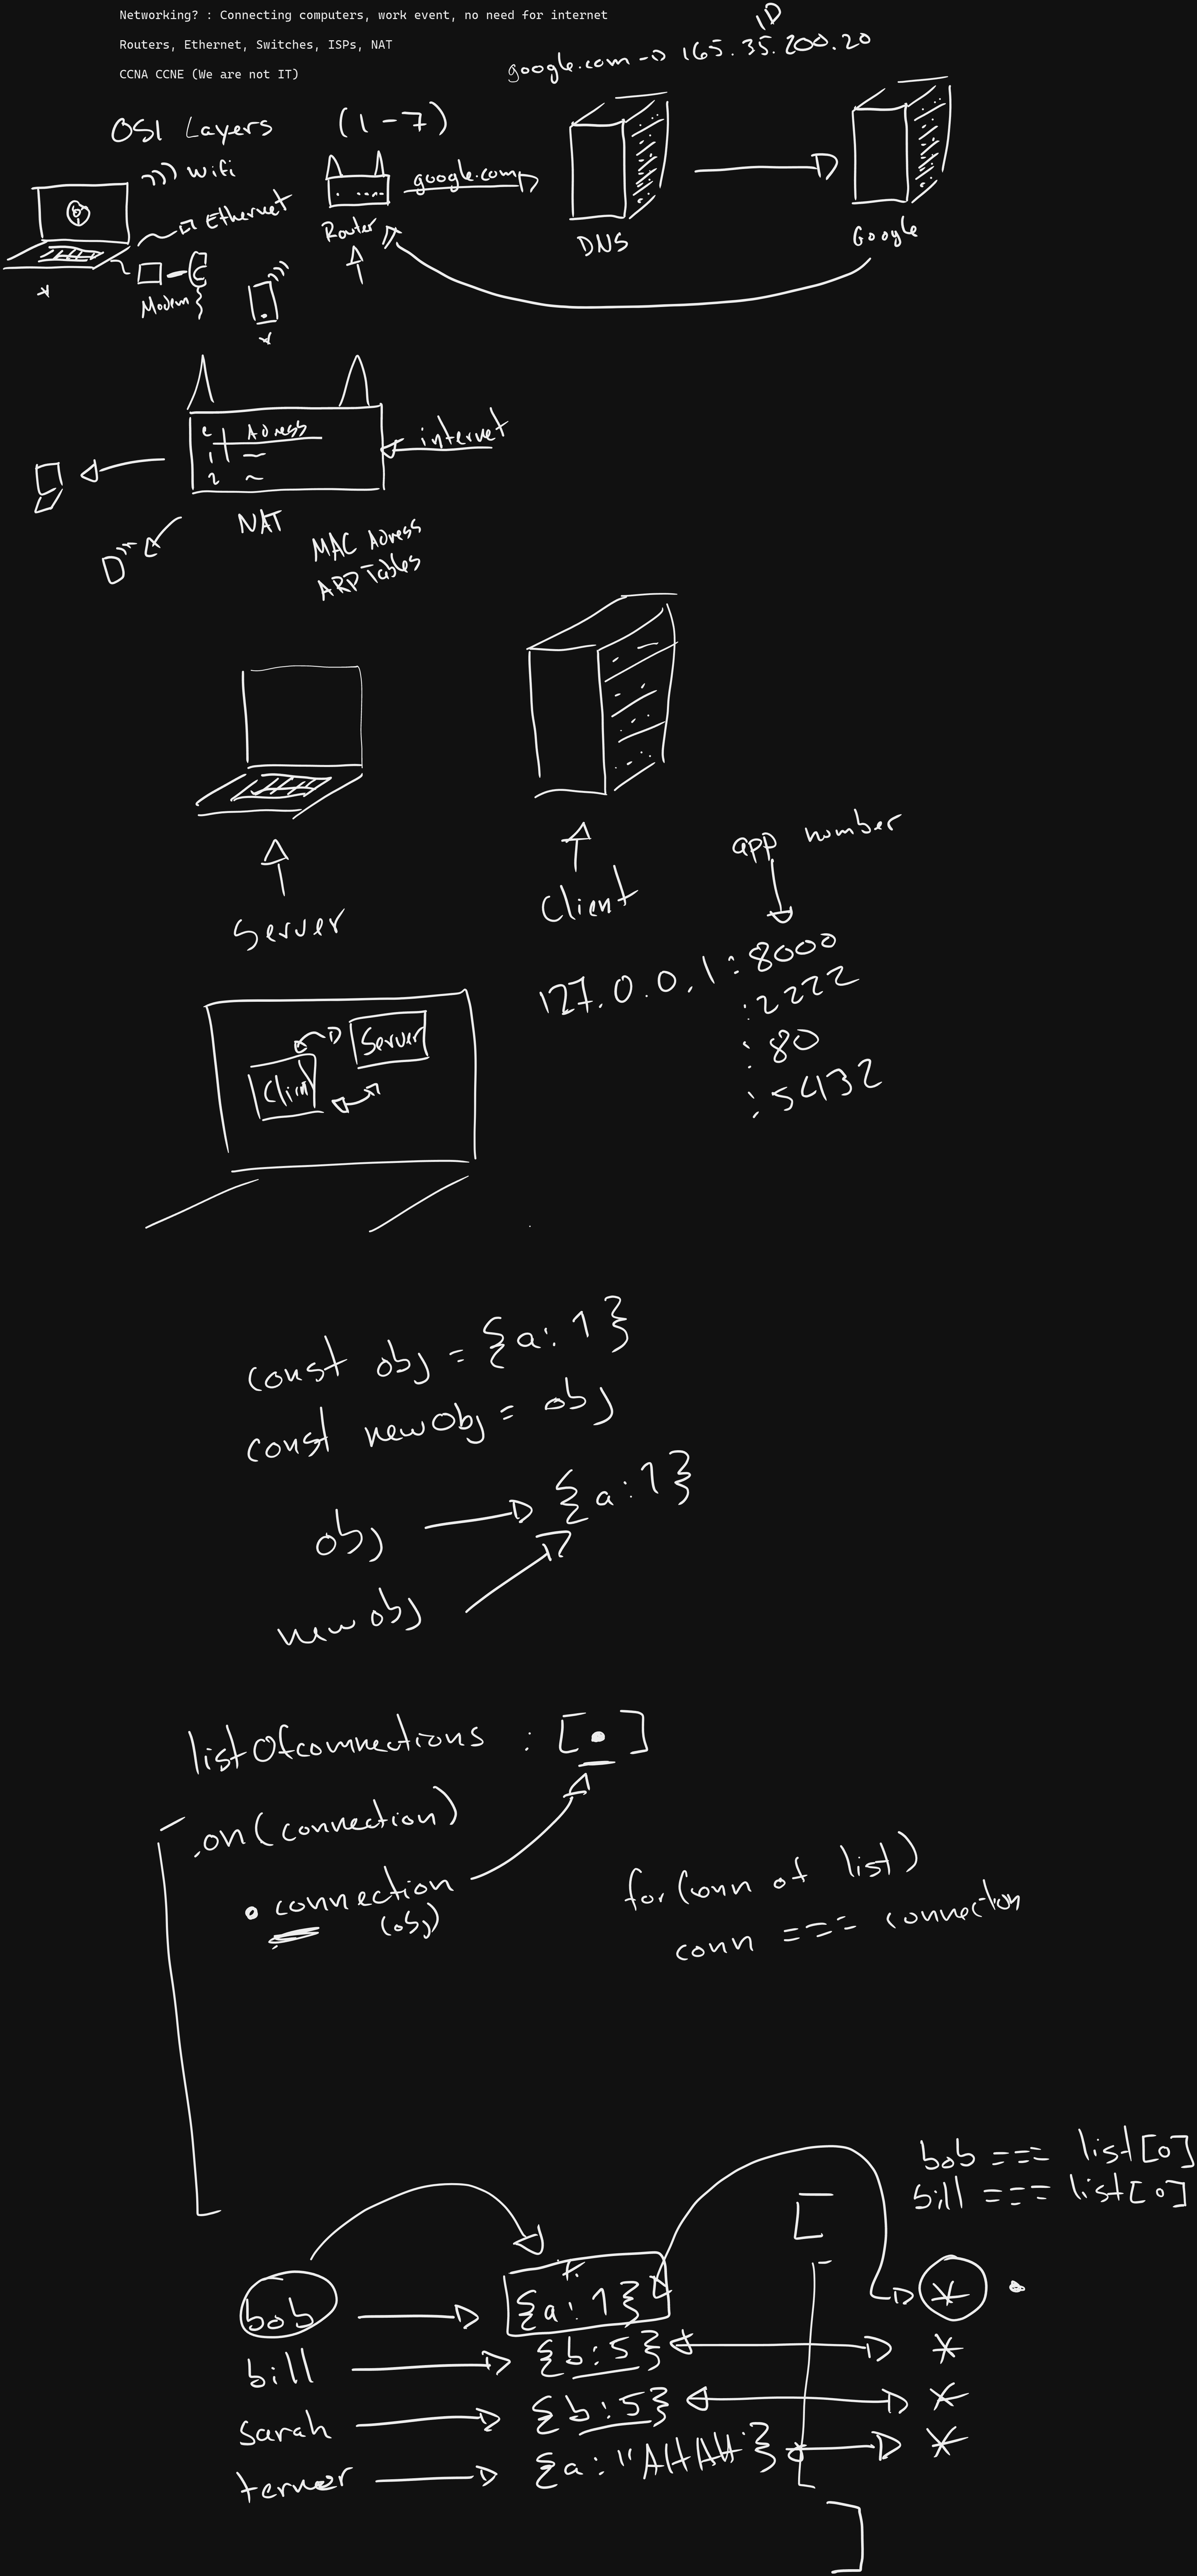 Networking? : Connecting computers, work event, no need for internet
Routers, Ethernet, Switches, ISPs, NAT
CCNA CCNE (We are not IT)
ID
google.com → 165.35.200.20
OSI Layers (1-7)
Wifi
google.com
Ethernet
Router
DNS
Google
Modem
Adress
1
2
internet
NAT
MAC Adress
ARP Tables
Server
Client
app number
127.0.0.1:8000
:2222
:80
:5432
Server
Client
const obj = {a:1}
const newObj = obj
obj → {a:1}
newobj
listOfconnections : [•]
.on(connection)
• connection
(obj)
for(conn of list)
conn === connection
bob === list[0]
bill === list[0]
[
bob → {a:1} *
bill → {b:5} *
sarah → {b:5} *
→ {a:"AHAH"} *
]